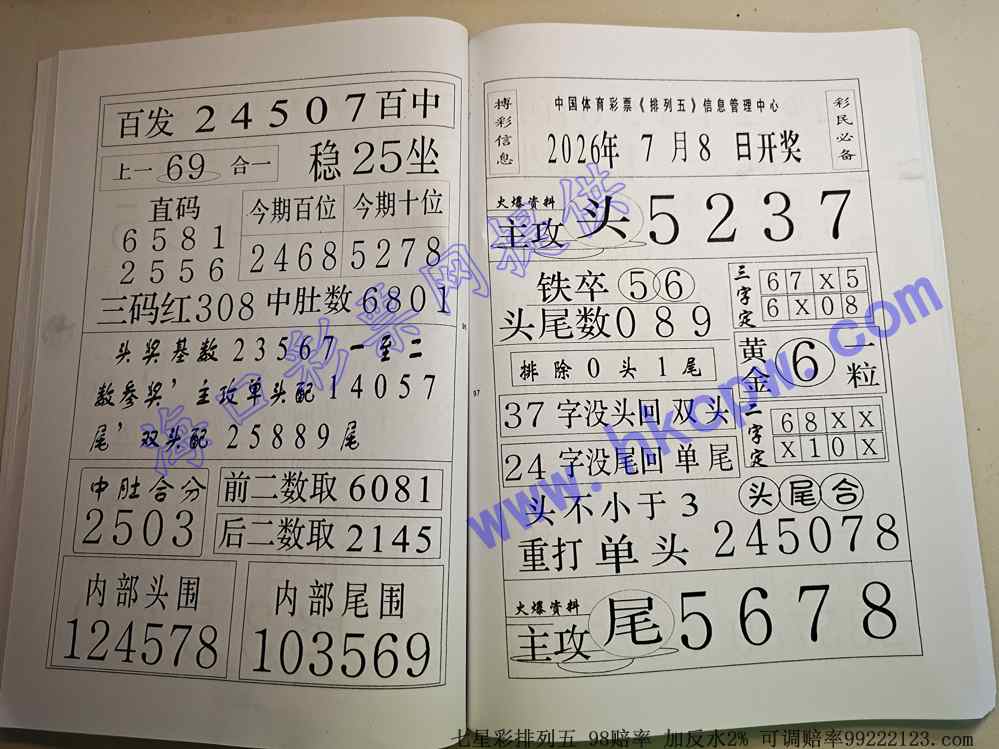 百发 24507 百中
上一 69 合一 稳25坐
直码
6581
2556
今期百位 今期十位
2468 5278
三码红308 中肚数6801
头奖基数23567一至二
数参奖'主攻单头配14057
尾'双头配25889尾
中肚合分
2503
前二数取6081
后二数取2145
内部头围
124578
内部尾围
103569
96
97
搏彩信息
中国体育彩票《排列五》信息管理中心
2026年 7月8 日开奖
彩民必备
火爆资料
主攻 头 5237
铁卒 56
头尾数089
三字定
67X5
6X08
排除0头1尾
黄金 6 一粒
37字没头回双头
24字没尾回单尾
二字定
68XX
X10X
头不小于3
头尾合
重打单头 245078
火爆资料
主攻 尾 5678
海口彩票网提供
www.hkcpw.com
七星彩排列五 98赔率 加反水2% 可调赔率99222123.com